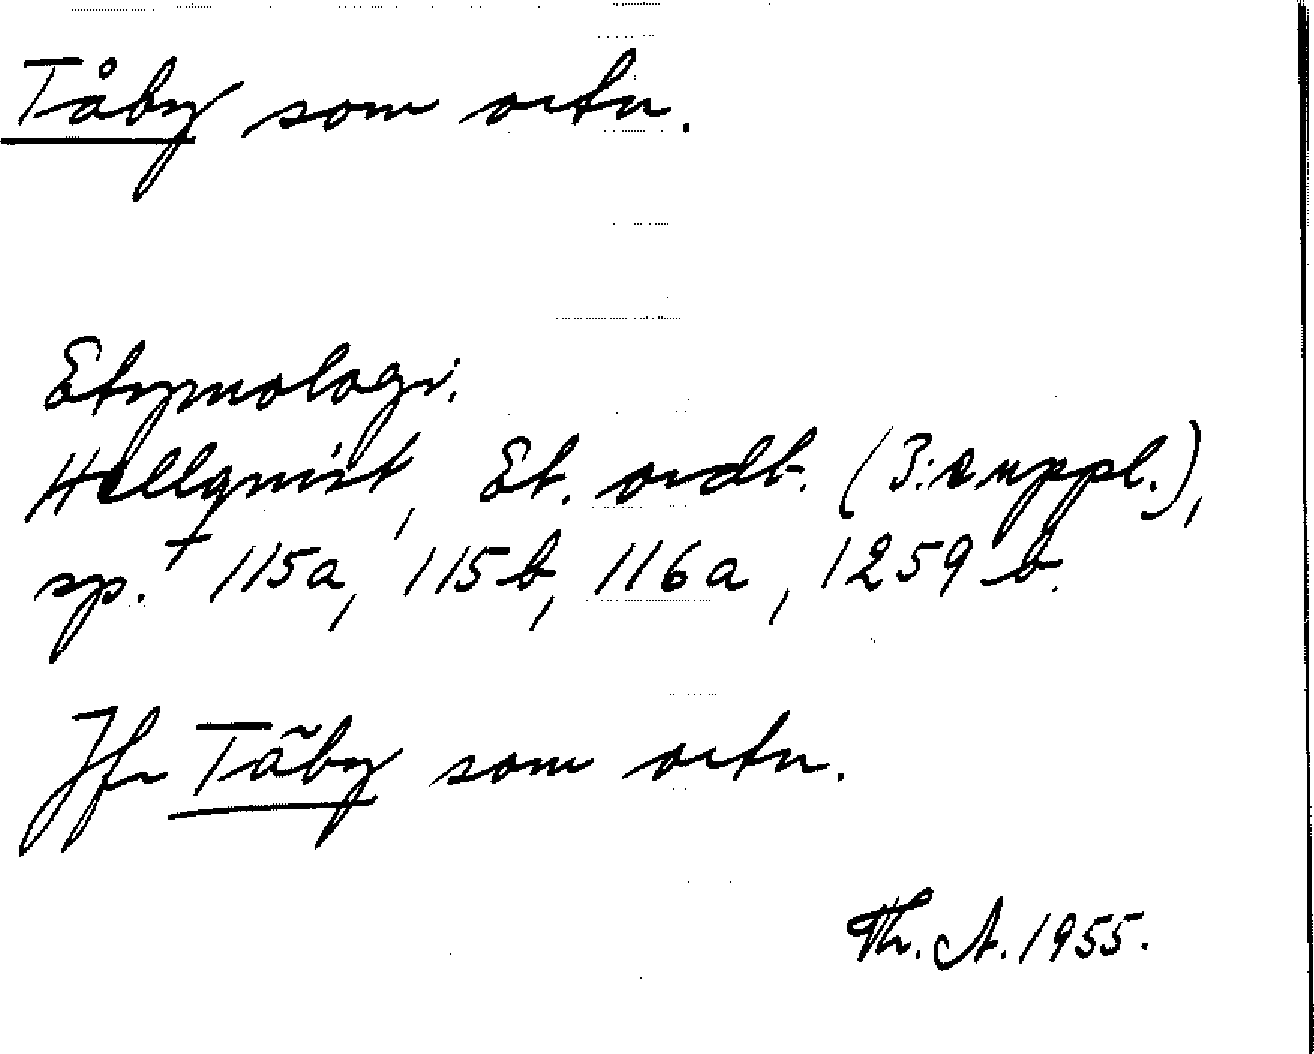 Tåby som ortn.
Etymologi.
Hellquist, Et. ordb. (3:e uppl.),
sp. 115a, 115b, 116a, 1259b.
Jfr Täby som ortn.
Th. A. 1955.